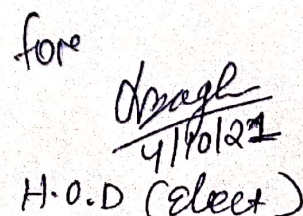 for
4/10/21
H.O.D (Elect)